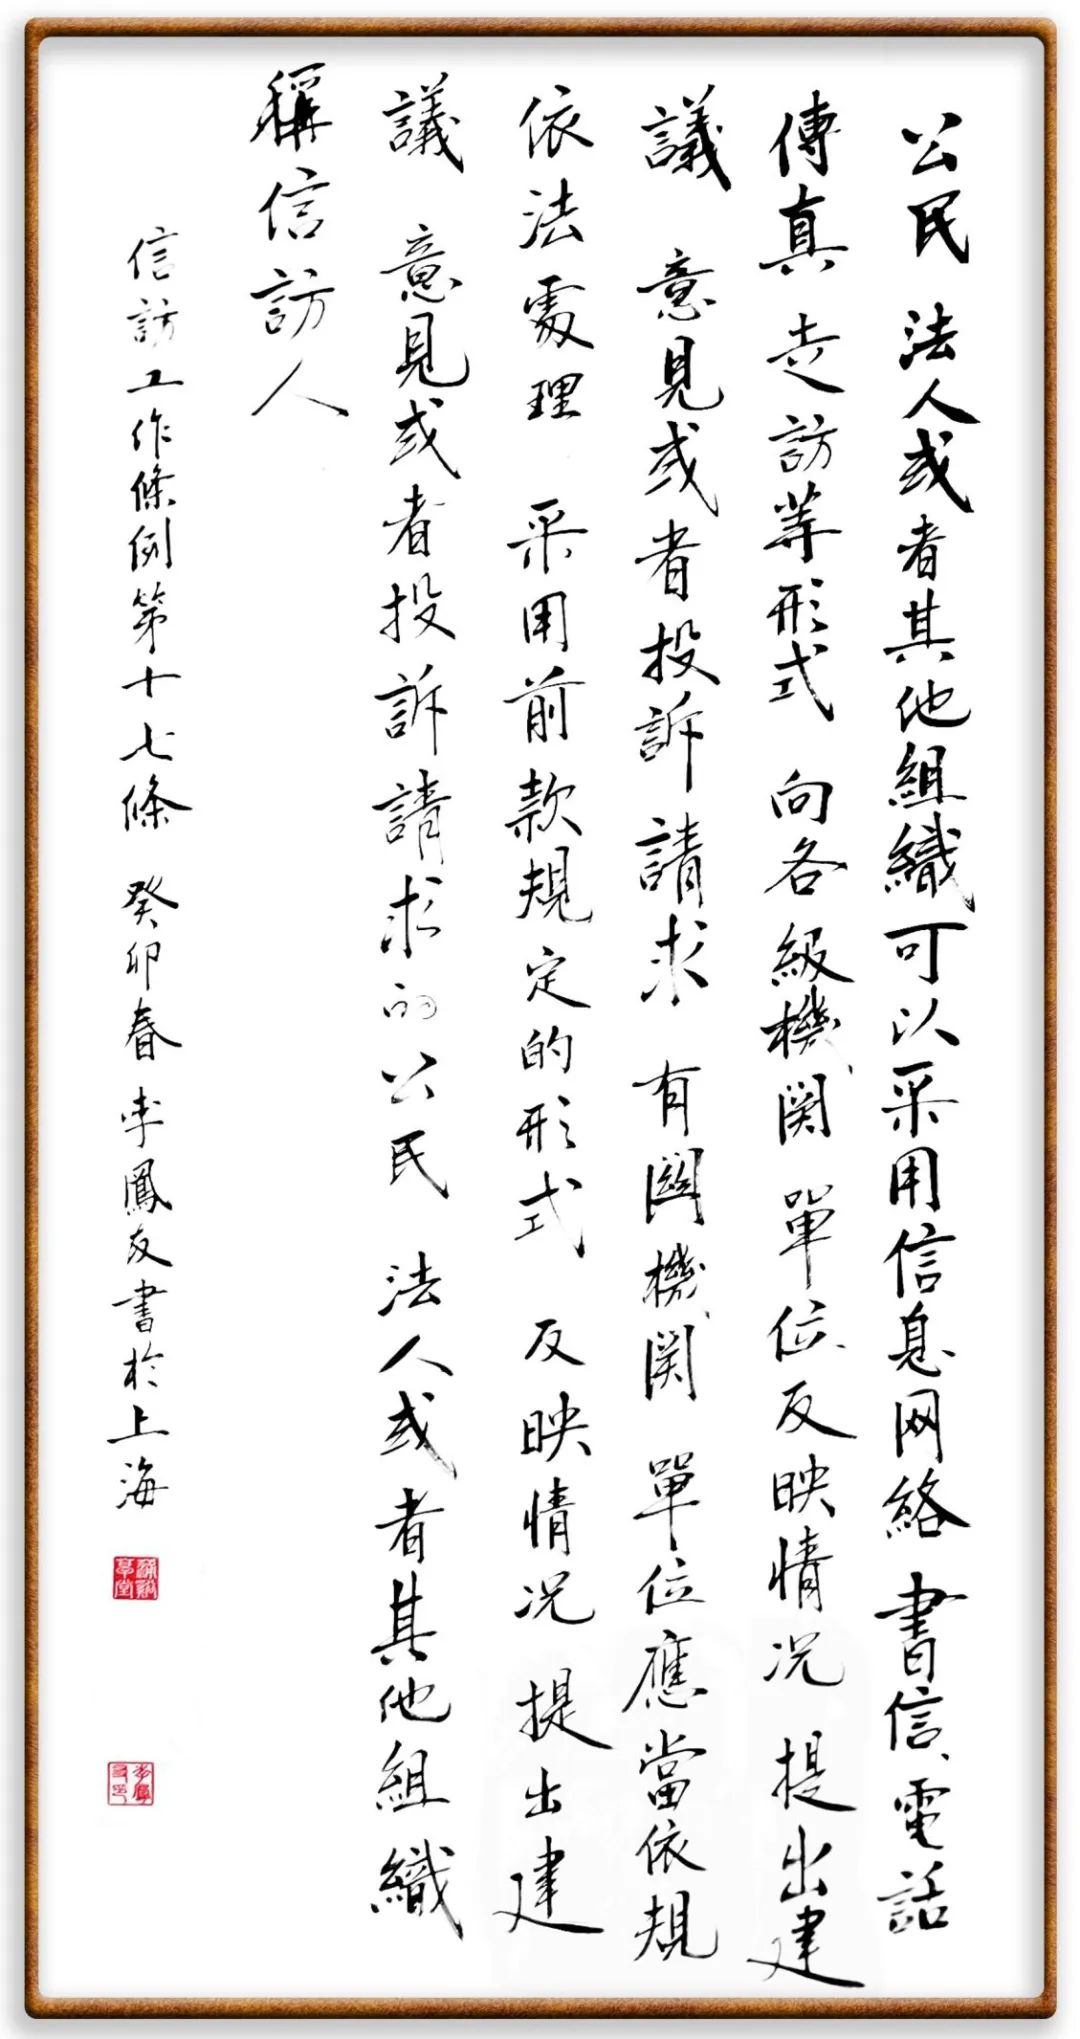 公民 法人或者其他組織可以采用信息网絡 書信、電話
傳真 走訪等形式 向各級機関 單位反映情况 提出建
議 意見或者投訴請求 有関機関 單位應當依規
依法處理 采用前款規定的形式 反映情况 提出建
議 意見或者投訴請求的公民 法人或者其他組織
稱信訪人
信訪工作條例第十七條 癸卯春 李鳳友書於上海
李鳳友印